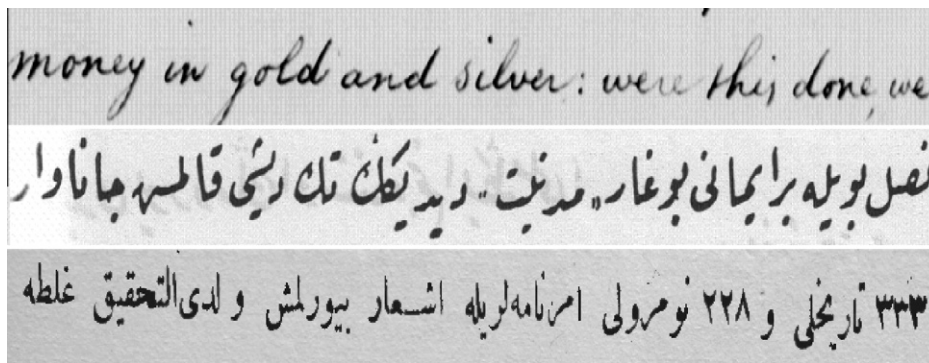 money in gold and silver: were this done, we
نصل بويله بر ايمانى بوغار، "مدنيت" ديديكك تك ديشى قالمش جاناوار
٣٣٣ تاريخلى و ٢٢٨ نومرولى امرنامه‌لريله اشعار بيورلمش و لدى التحقيق غلطه